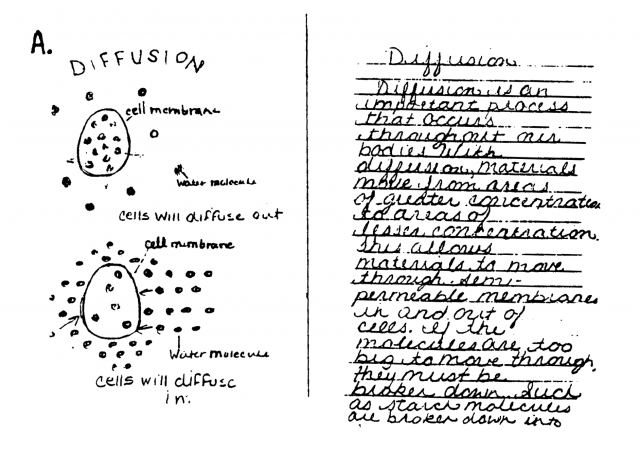 A.
DIFFUSION
cell membrane
Water molecule
cells will diffuse out
cell membrane
Water molecule
cells will diffuse
in.
Diffusion
Diffusion is an
important process
that occurs
throughout our
bodies. With
diffusion, materials
move from areas
of greater concentration
to areas of
lesser concentration.
This allows
materials to move
through semi-
permeable membranes
in and out of
cells. If the
molecules are too
big to move through,
they must be
broken down. Such
as starch molecules
are broken down into